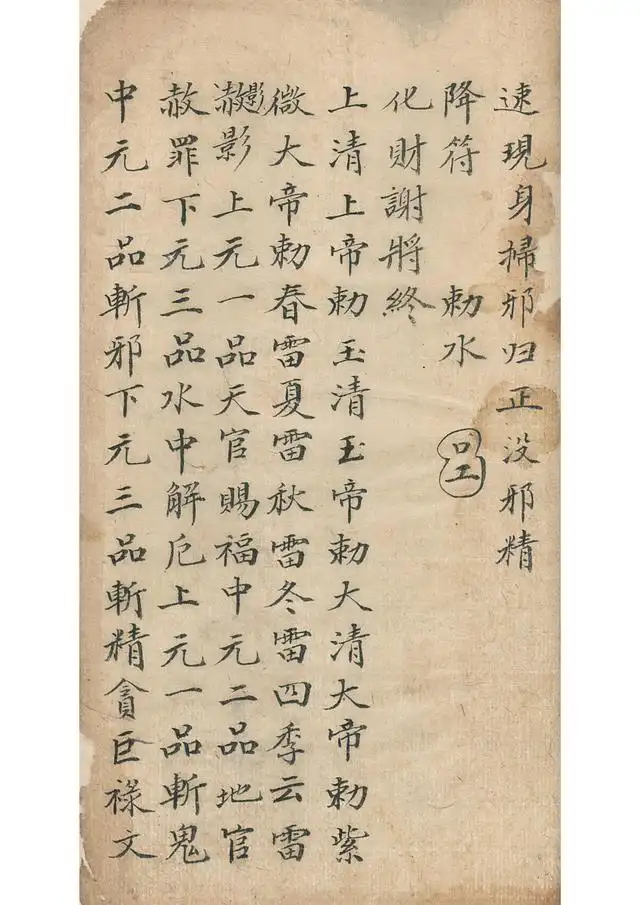 速現身掃邪归正没邪精
降符 勅水 口工
化財謝將終
上清上帝勅玉清玉帝勅大清大帝勅紫
微大帝勅春雷夏雷秋雷冬雷四季云雷
赦影影上元一品天官賜福中元二品地官
赦罪下元三品水中解厄上元一品斬鬼
中元二品斬邪下元三品斬精貪巨祿文